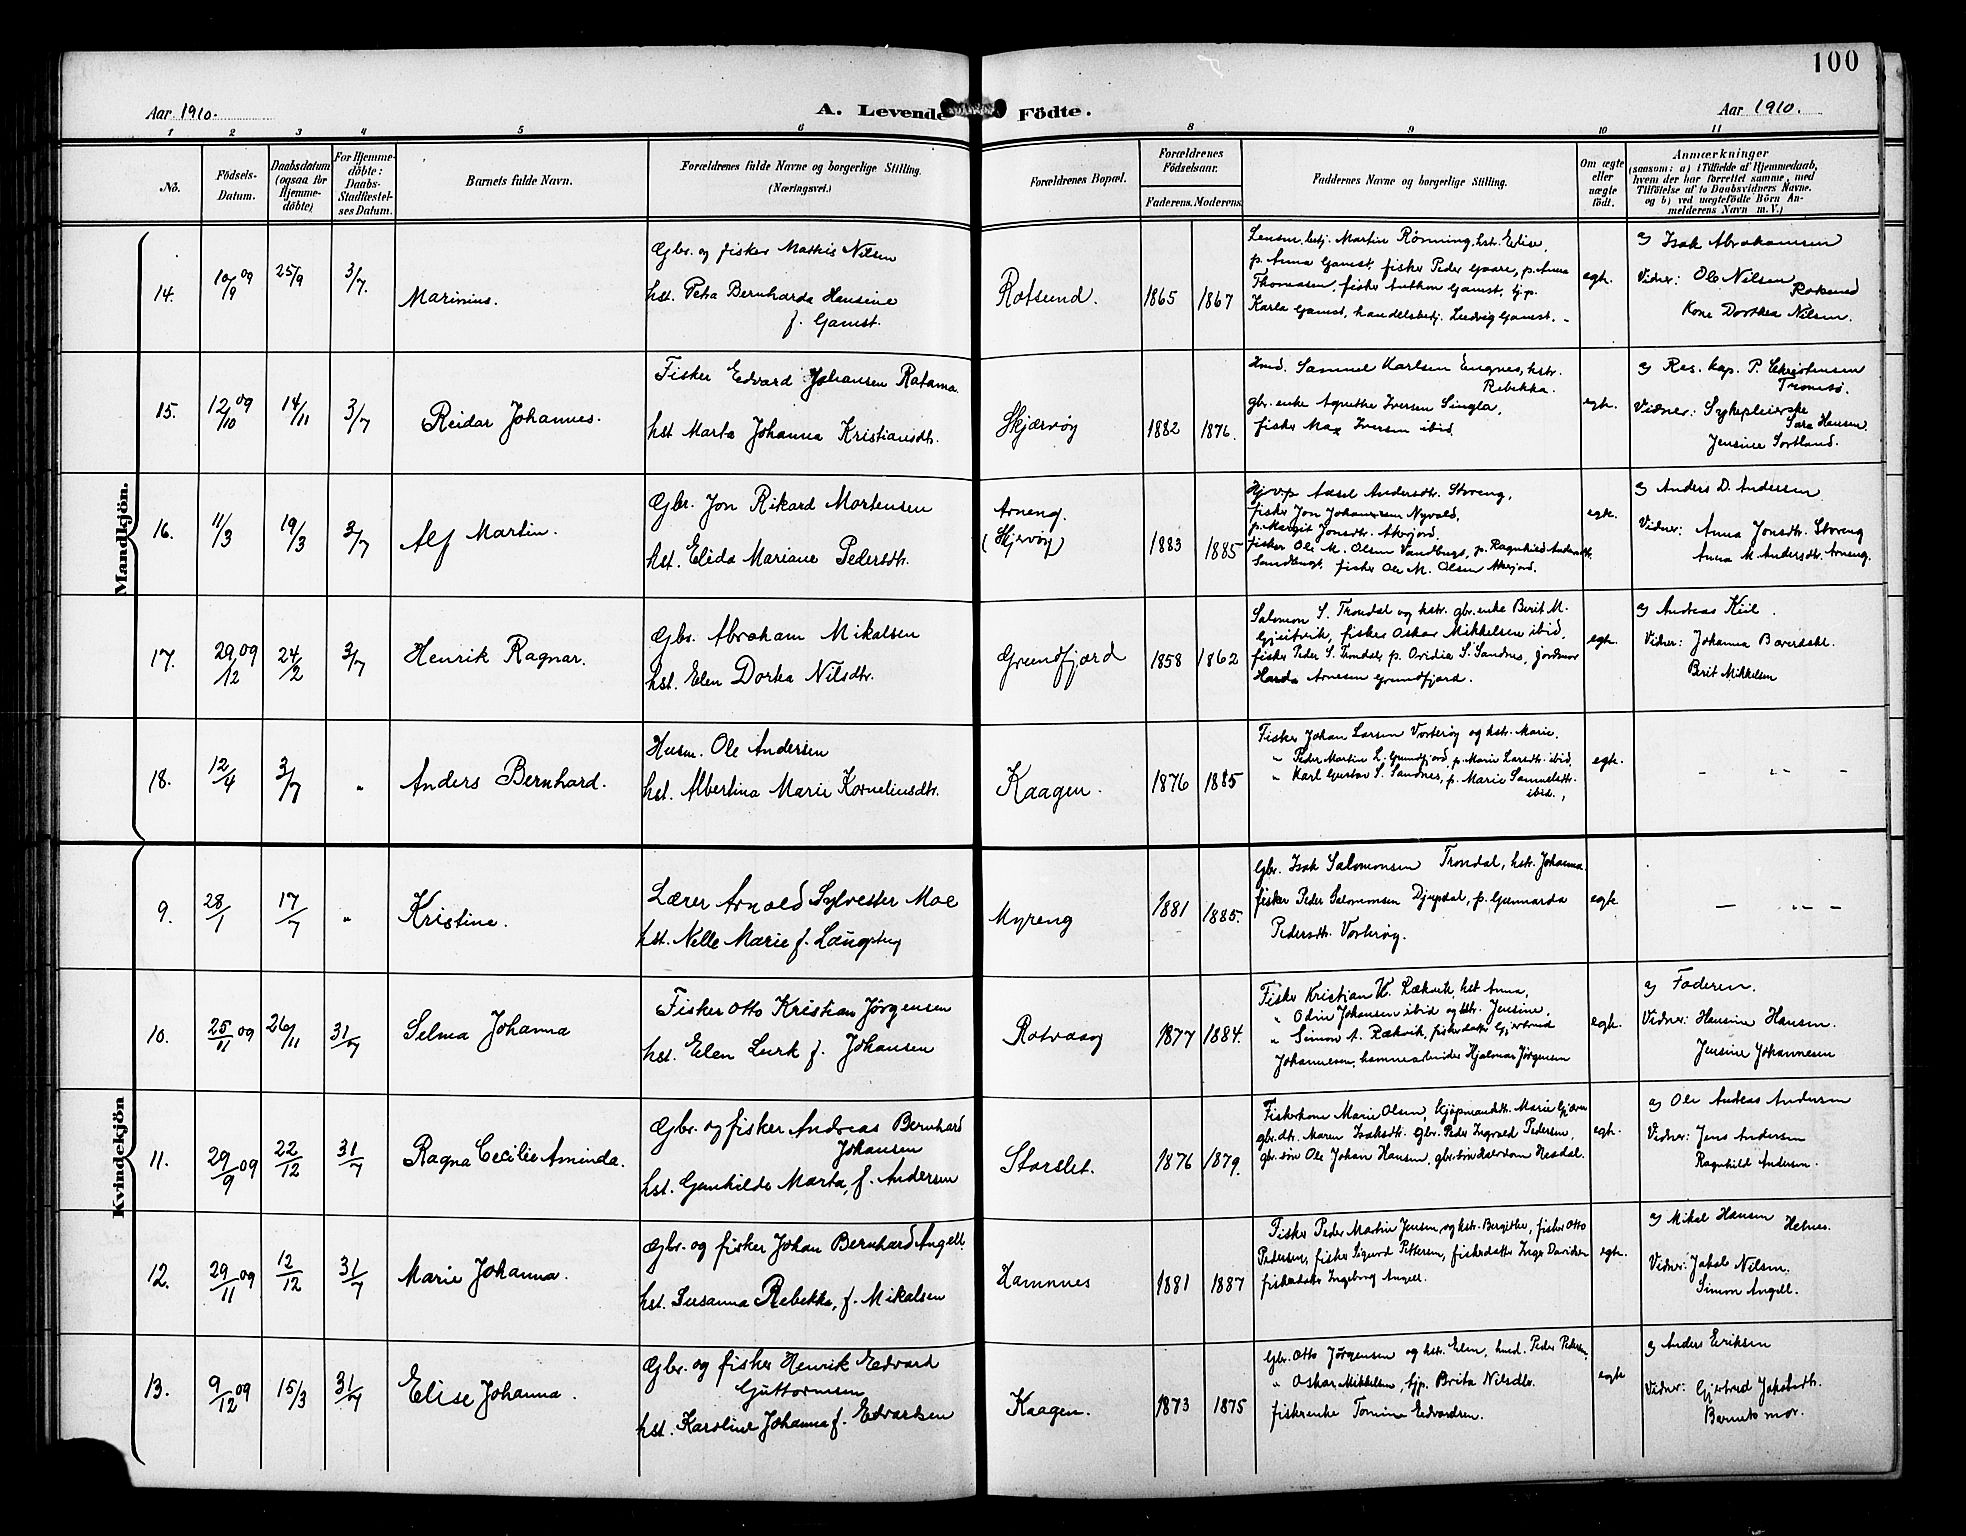 100
Aar 1910.
A. Levende Fødte.
Aar 1910.
1 2 3 4 5 6 8 9 10 11
No.
Födsels-
Datum.
Daabsdatum
(ogsaa for
Hjemme-
döbte)
For Hjemme-
döbte:
Daabs-
Stadfæstel-
ses Datum.
Barnets fulde Navn.
Forældrenes fulde Navne og borgerlige Stilling.
(Næringsvei.)
Forældrenes Bopæl.
Forældrenes
Födselsaar.
Faderens. Moderens.
Faddernes Navne og borgerlige Stilling.
Om ægte
eller
uægte
födt.
Anmærkninger
(saasom: a) i Tilfælde af Hjemmedaab,
hvem der har forrettet samme, med
Tilföielse af to Daabsvidners Navne.
og b) ved uægtefödte Börn An-
melderens Navn m. V.)
Mandkjön.
14.
10/9 09
25/9
3/7.
Marinius.
Gbr. og fisker Mathis Nilsen
hst. Petra Bernharda Hansine
f. Gamst.
Rotsund.
1865
1867
Lensm. betj. Martin Rønning, hst. Elise,
p. Anna Gamst, fisker Peder Gaare, p. Anna
Thomassen, fisker Anthon Gamst, tj.p.
Karla Gamst, handelsbetj. Ludvig Gamst. -
egt.
a) Isak Abrahamsen
Vidner: Ole Nilsen
Rotsund
Kone Dorthea Nilsen.
15.
12/10 09
14/11
3/7
Reidar Johannes.
Fisker Edvard Johansen Ratama.
hst Marta Johanna Kristiansdtr.
Skjærvøy
1882
1876.
Hmd. Samuel Karlsen Engnes, hstr.
Rebekka.
gbr. enke Agnethe Iversen Singla,
fisker Max Iversen ibid.
egt.
a) Res. kap. P. Christensen
Tromsö.
Vidner: Sykepleierske
Sara Hansen.
Jensine Sortland.
16.
11/3
19/3
3/7
Alf Martin.
Gbr. Jon Rikard Mortensen
hst. Elida Mariane Pedersdtr.
Arneng.
(Skjervøy)
1883
1885
Andersdtr. Storeng,
fisker Jon Johannesen Nyvold,
p. Margit Jonsdtr. Akkjord,
fisker Ole M. Olsen Sandbugt, p. Ragnhild Andersdtr.
Sandbugt, fisker Ole M. Olsen Akkjord.
egt.
a) Anders D. Andersen
Vidner: Anna Jonsdtr. Storeng
Anna M. Andersdtr. Arneng.
17.
29/12 09
24/2
3/7
Henrik Ragnar.
Gbr. Abraham Mikalsen
hst. Elen Dorka Nilsdtr.
Grundfjord
1858
1862
Salomon S. Trondal og hstr. gbr. enke Berit M.
Gjeitvik, fisker Oskar Mikkelsen ibid,
fisker Peder S. Trondal, p. Ovidia S. Sandnes, jordmor
Harda Arnesen Grundfjord.
egt.
a) Andreas Keil.
Vidner: Johanna
Berit Mikkelsen
18.
12/4
3/7
"
Anders Bernhard.
Husm. Ole Andersen
hst. Albertina Marie Korneliusdtr.
Kaagen.
1876
1885
Fisker Johan Larsen Vorterøy og hstr. Marie,
" Peder Martin L. Grundfjord, p. Marie Larsdtr. ibid,
" Karl Gustav S. Sandnes, p. Marie Samuelsdtr.
ibid.,
egt.
- " -
Kvindekjön
9.
28/1
17/7
"
Kristine.
Lærer Arnold Sylvester Moe
hst. Nelle Marie f. Langstrøy
Myreng
1881
1885.
Gbr. Isak Salomonsen Trondal, hstr. Johanna
fisker Peder Salomonsen Djupdal, p. Gunnarda
Pedersdtr. Vorterøy.
egt.
- " -
10.
25/11 09
26/11
31/7
Selma Johanna
Fisker Otto Kristian Jørgensen
hst. Elen Lurk f. Johansen
Rotvaag
1877
1884.
Fisker Kristian H. Rækvik, hst Anna,
" Odin Johansen ibid og hstr. Jensine,
" Simon A. Rækvik, fiskerdatter Gjertrud
Johannesen, havnearbeider Hjalmar Jørgensen
egt.
a) Faderen.
Vidner: Hansine Hansen.
Jensine Johannesen
11.
29/9 09
22/12
31/7
Ragna Cecilie Aminda.
Gbr. og fisker Andreas Bernhard
Johansen
hst. Gunhilda Marta, f. Andersen
Storslet.
1876
1879.
Fiskerkone Marie Olsen, kjøpmandsdtr. Marie Gjæver
gbr. dtr. Maren Isaksdtr. Gbr. Peder Ingvald Pedersen,
gbr. søn Ole Johan Hansen, gbr. søn Halvdan Nesdal.
egt.
a) Ole Andreas Andersen
Vidner: Jens Andersen
Ragnhild Andersen.
12.
29/11 09
12/12
31/7
Marie Johanna.
Gbr. og fisker Johan Bernhard Angell.
hst. Susanna Rebekka, f. Mikalsen
Hamnnes
1881
1887
Fisker Peder Martin Jensen, og hstr. Bergithe, fisker Otto
Pedersen, fisker Sigurd Pettersen, fiskerdatter Inga Davidsen
fiskerdatter Ingeborg Angell.
egt.
a) Mikal Hansen
Vidner: Jakob Nilsen.
Simon Angell.
13.
9/12 09
15/3
31/7
Elise Johanna.
Gbr. og fisker Henrik Edvard
Guttormsen
hst. Karoline Johanna f. Edvardsen
Kaagen.
1873
1875
Gbr. Otto Jørgensen og hstr. Elen, hmd. Peder Pedersen,
" Oskar Mikkelsen, tjp. Brita Nilsdtr.
fiskerenke Tomine Edvardsen.
egte
a) Anders Eriksen
Vidner: Gjertrud Jakobsdtr.
Barnets mor.